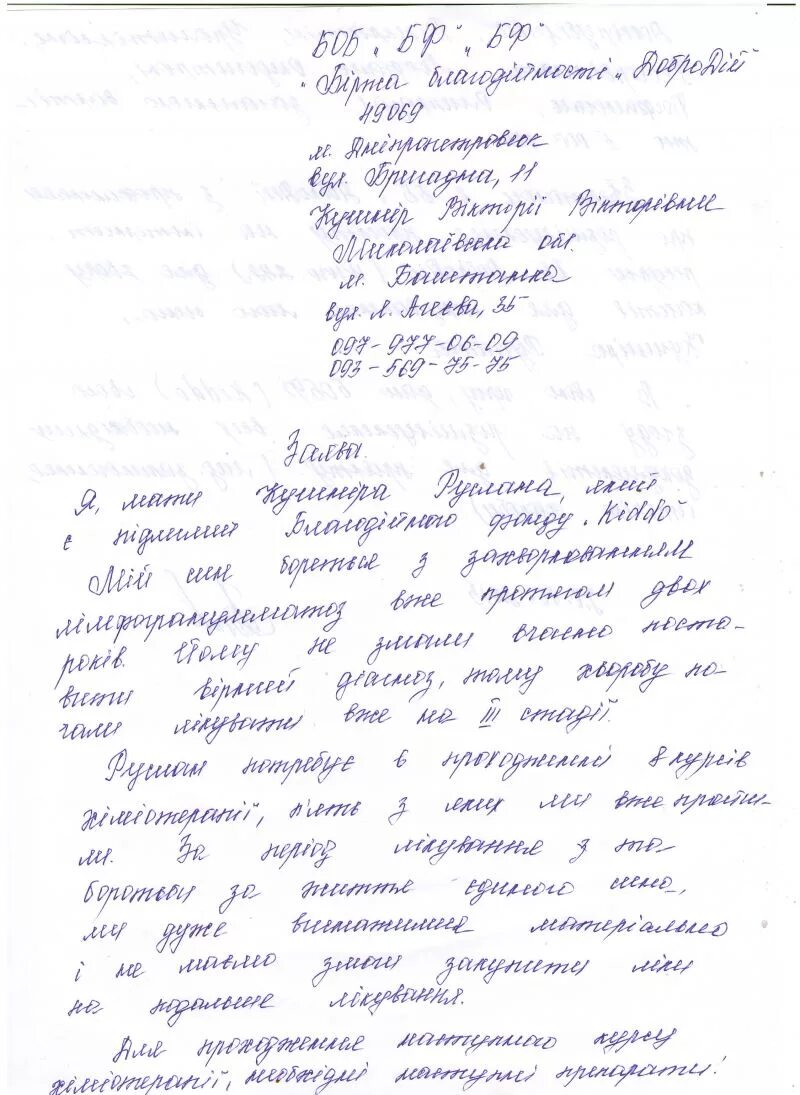 БОБ „ БФ" „ БФ"
„Біржа благодійності" „ДоброДій"
49069
м. Дніпропетровськ
вул. Бригадна, 11
Кушнір Вікторії Вікторівни
Миколаївська обл.
м. Баштанка
вул. А. Агєєва, 35
097-977-06-09
093-569-75-75
Заява.
Я, мати Кушніра Руслана, який
є підлеглий Благодійного фонду „Kiddo"
Мій син бореться з захворюванням
лімфогранулематоз вже протягом двох
років. Йому не змогли вчасно поста-
вити вірний діагноз, тому хворобу по-
чали лікувати вже на III стадії.
Руслан потребує в проходженні 8 курсів
хіміотерапії, п'ять з яких ми вже пройш-
ли. За період лікування з та
боротьби за життя єдиного сина,
ми дуже виснажились матеріально
і не маємо змоги закупити ліки
на подальше лікування.
Для проходження наступного курсу
хіміотерапії, необхідні наступні препарати: